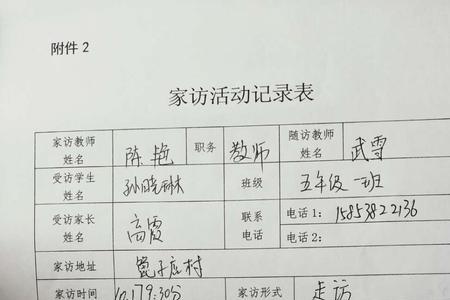 附件 2
家访活动记录表
家访教师姓名 陈艳 职务 教师 随访教师姓名 武雪
受访学生姓名 孙晓琳 班级 五年级一班
受访家长姓名 高霞 联系电话 电话1: 15853822136
电话2:
家访地址 篦子店村
家访时间 家访形式 走访